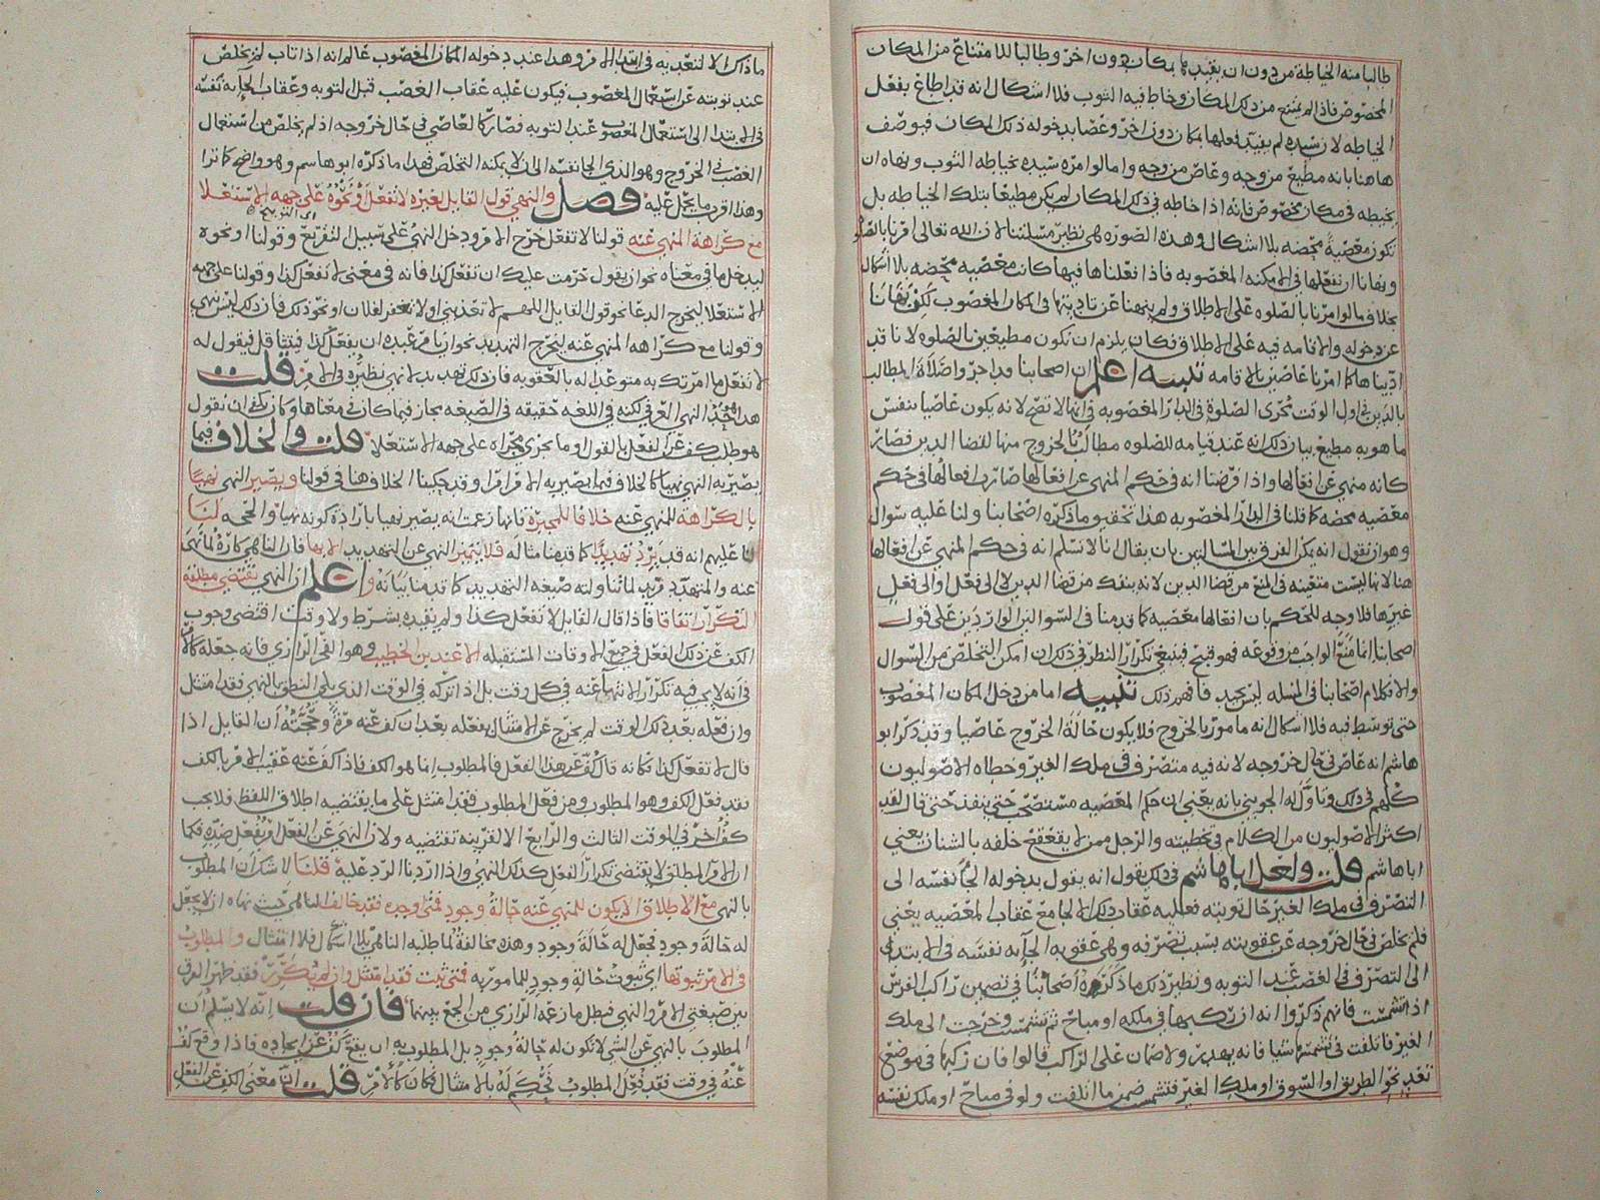 طالبا منه الخياطة من دون ان يقيد بمكان دون اخر وطالبا للامتناع من المكان
المخصوص فاذا لم يمتنع من ذلك المكان وخاط فيه الثوب فلا اشكال انه قد اطاع بفعل
الخياطه لان سيده لم يقيد فعلها بمكان دون اخر وعصا بدخوله ذلك المكان فيوصف
هاهنا بانه مطيع من وجه وعاص من وجه واما لو امره سيده بخياطه الثوب ونهاه ان
يخيطه في مكان مخصوص فانه اذا خاطه في ذلك المكان لم يكن مطيعا بتلك الخياطه بل
تكون معصية محضه بلا اشكال وهذه الصوره هي نظير مسئلتنا لان الله تعالى امرنا بالصلوه
ونهانا ان نفعلها في الامكنه المغصوبه فاذا فعلناها فيها كانت معصيه محضه بلا اشكال
بخلاف ما لو امرنا بالصلوه على الاطلاق ولم ينهنا عن تاديتها في المكان المغصوب لكن نهانا
عن دخوله والاقامه فيه على الاطلاق فكان يلزم ان نكون مطيعين بالصلوه لانا قد
ادّيناها كما امرنا عاصين بالاقامه تنبيه اعلم ان اصحابنا
بالدين في اول الوقت مجرى الصلوة في الدار المغصوبه في انها لا تصح لانه يكون عاصيا بنفس
ما هو به مطيع بيان ذلك انه عند قيامه للصلوه مطالب بالخروج منها لقضا الدين فصار
كانه منهي عن افعالها واذا فرضنا انه في حكم المنهي عن افعالها صارت افعالها في حكم
معصيه محضه كما قلنا في الدار المغصوبه هذا تحقيق ما ذكره اصحابنا ولنا عليه سوال
وهو ان نقول انه يمكن الفرق بين المسالتين بان يقال انا لا نسلم انه في حكم المنهي عن افعالها
هنا لانها ليست متعينه في المنع من قضا الدين لانه ينفك من قضا الدين لا الى فعل او الى فعل
غيرها فلا وجه للحكم بان افعالها معصيه كما قدمنا في السوالين الواردين على قول
اصحابنا انما منع الواجب من وقوعه فهو قبيح فينبغي تكرار النظر في ذلك ان امكن التخلص من السوال
والا فكلام اصحابنا في المسئله ليس بجيد فافهم ذلك تنبيه اما من دخل المكان المغصوب
حتى توسط فيه فلا اشكال انه مامور بالخروج فلا يكون حالة الخروج عاصيا وقد ذكر ابو
هاشم انه عاص في حال خروجه لانه فيه متصرف في ملك الغير وخطاه الاصوليون
كلهم في ذلك وتاوّله الجويني بانه يعني ان حكم المعصيه مستصحب حتى ينفذ حتى قال لقد
اكثر الاصوليون من الكلام في تخطيته والرجل ممن لا يقعقع خلفه بالشنان يعني
ابا هاشم قلت ولعل ابا هاشم في ذلك يقول انه يقول بدخوله الجأ نفسه الى
التصرف في ملك الغير حال توبته فعليه عقاب ذلك الالجا مع عقاب المعصيه يعني
فلم يخلص في حال خروجه عن عقوبته بسبب تصرفه وهي عقوبه الجآيه نفسه في الابتدى
الى التصرف في الغصب عند التوبه ونظير ذلك ما ذكره اصحابنا في تضمين راكب الفرس
اذا تشمست فانهم ذكروا انه ان ركبها في ملكه او مباح ثم تشمست وخرجت الى ملك
الغير فاتلفت في تشمسها شيا فانه يهدر ولا ضمان على الراكب قالوا فان ركبها في موضع
تعد نحو الطريق او السوق او ملك الغير فتشمست ضمن ما اتلفت ولو في مباح او ملك نفسه
ما ذاك الا لتعديه في ابتدا الامر وهذا عند دخوله المكان المغصوب عالم انه اذا تاب لم يخلص
عند توبته عن استعمال المغصوب فيكون عليه عقاب الغصب قبل التوبه وعقاب الجآيه نفسه
في الابتدا الى استعمال المغصوب عند التوبه فصار كالعاصي في حال خروجه اذ لم يخلص من استعمال
الغصب في الخروج وهو الذي الجا نفسه الى ان لا يمكنه التخلص فهذا ما ذكره ابو هاشم وهو واضح كما ترا
وهذا اقرب ما يحمل عليه فصل والنهي قول القايل لغيره لا تفعل او نحوه على جهه الاستعلا
مع كراهة المنهي عنه قولنا لا تفعل خرج الامر ودخل النهي على سبيل التفريع وقولنا او نحوه
ليدخل ما في معناه نحو ان يقول حرمت عليك ان تفعل كذا فانه في معنى لا تفعل كذا وقولنا على جهه
الاستعلا ليخرج الدعا نحو قول القايل اللهم لا تعذبني او لا تغفر لفلان او نحو ذلك فان ذلك ليس نهي
وقولنا مع كراهه المنهي عنه ليخرج التهديد نحو ان يامر عبده ان يفعل كذا فيتثاقل فيقول له
لا تفعل ما امرتك به متوعدا له بالعقوبه فان ذلك تهديد لا نهي نظيره في الامر قلت
هذا حد النهي العرفي لكنه في اللغه حقيقه في الصيغه مجاز فيما كان في معناها وكان يكفي ان نقول
هو طلب كف عن الفعل بالقول او ما يجري مجراه على جهه الاستعلا قلت والخلاف فيما
يصير به النهي نهيا كالخلاف فيما يصير به الامر امرا وقد حكينا الخلاف هنا في قولنا ويصير النهي نهيا
بالكراهة للمنهي عنه خلافا للمجبرة فانها زعمت انه يصير نهيا بارادة كونه نهيا والحجه لنا
لنا عليهم انه قد يرد تهديدا كما قدمنا مثاله فلا يتميز النهي عن التهديد الا بها فان الناهي كاره للمنهي
عنه والمتهدد مريد لما تناولته صيغه التهديد كما قدمنا بيانه واعلم ان النهي يقتضي مطلقه
التكرار اتفاقا فاذا قال القايل لا تفعل كذا ولم يقيده بشرط ولا وقت اقتضى وجوب
الكف عن ذلك الفعل في جميع الاوقات المستقبله الا عند ابن الخطيب وهو الفخر الرازي فانه جعله كالامر
في انه لا يجب فيه تكرار الانتهآ عنه في كل وقت بل اذا تركه في الوقت الذي يلي النطق بالنهي فقد امتثل
وان فعله بعد ذلك الوقت لم يخرج عن الامتثال بفعله بعد ان كف عنه مرة وحجته ان القايل اذا
قال لا تفعل كذا فكانه قال كف عن هذا الفعل فالمطلوب انما هو الكف فاذا كف عنه عقيب الامر بالكف
فقد فعل الكف وهو المطلوب ومن فعل المطلوب فقد امتثل على ما يقتضيه اطلاق اللفظ فلا يجب
كف اخر في الوقت الثالث والرابع الا لقرينه تقتضيه ولان النهي عن الفعل امر بفعل ضده فكما
ان الامر المطلق لا يقتضي تكرار الفعل كذلك النهي واذا اردنا الرد عليه قلنا لا شك ان المطلوب
بالنهي مع الاطلاق الا يكون للمنهي عنه حالة وجود فمتى وجد فقد خالف الناهي حيث نهاه ان لا يجعل
له حالة وجود فجعل له حالة وجود وهذه مخالفة لما طلبه الناهي بلا اشكال فلا امتثال والمطلوب
في الامر ثبوتها اي ثبوت حالة وجود للمامور به فمتى ثبت فقد امتثل وان لم يتكرر فقد ظهر الفرق
بين صيغتي الامر والنهي فبطل ما زعمه الرازي من الجمع بينهما فان قلت انه لا يسلم ان
المطلوب بالنهي عن الشي لا تكون له حالة وجود بل المطلوب به ان يقع كف عن ايجاده فاذا وقع كف
عنه في وقت فقد فعل المطلوب فيحكم له بالامتثال فكان كالامر قلت ان معنى الكف عن الفعل